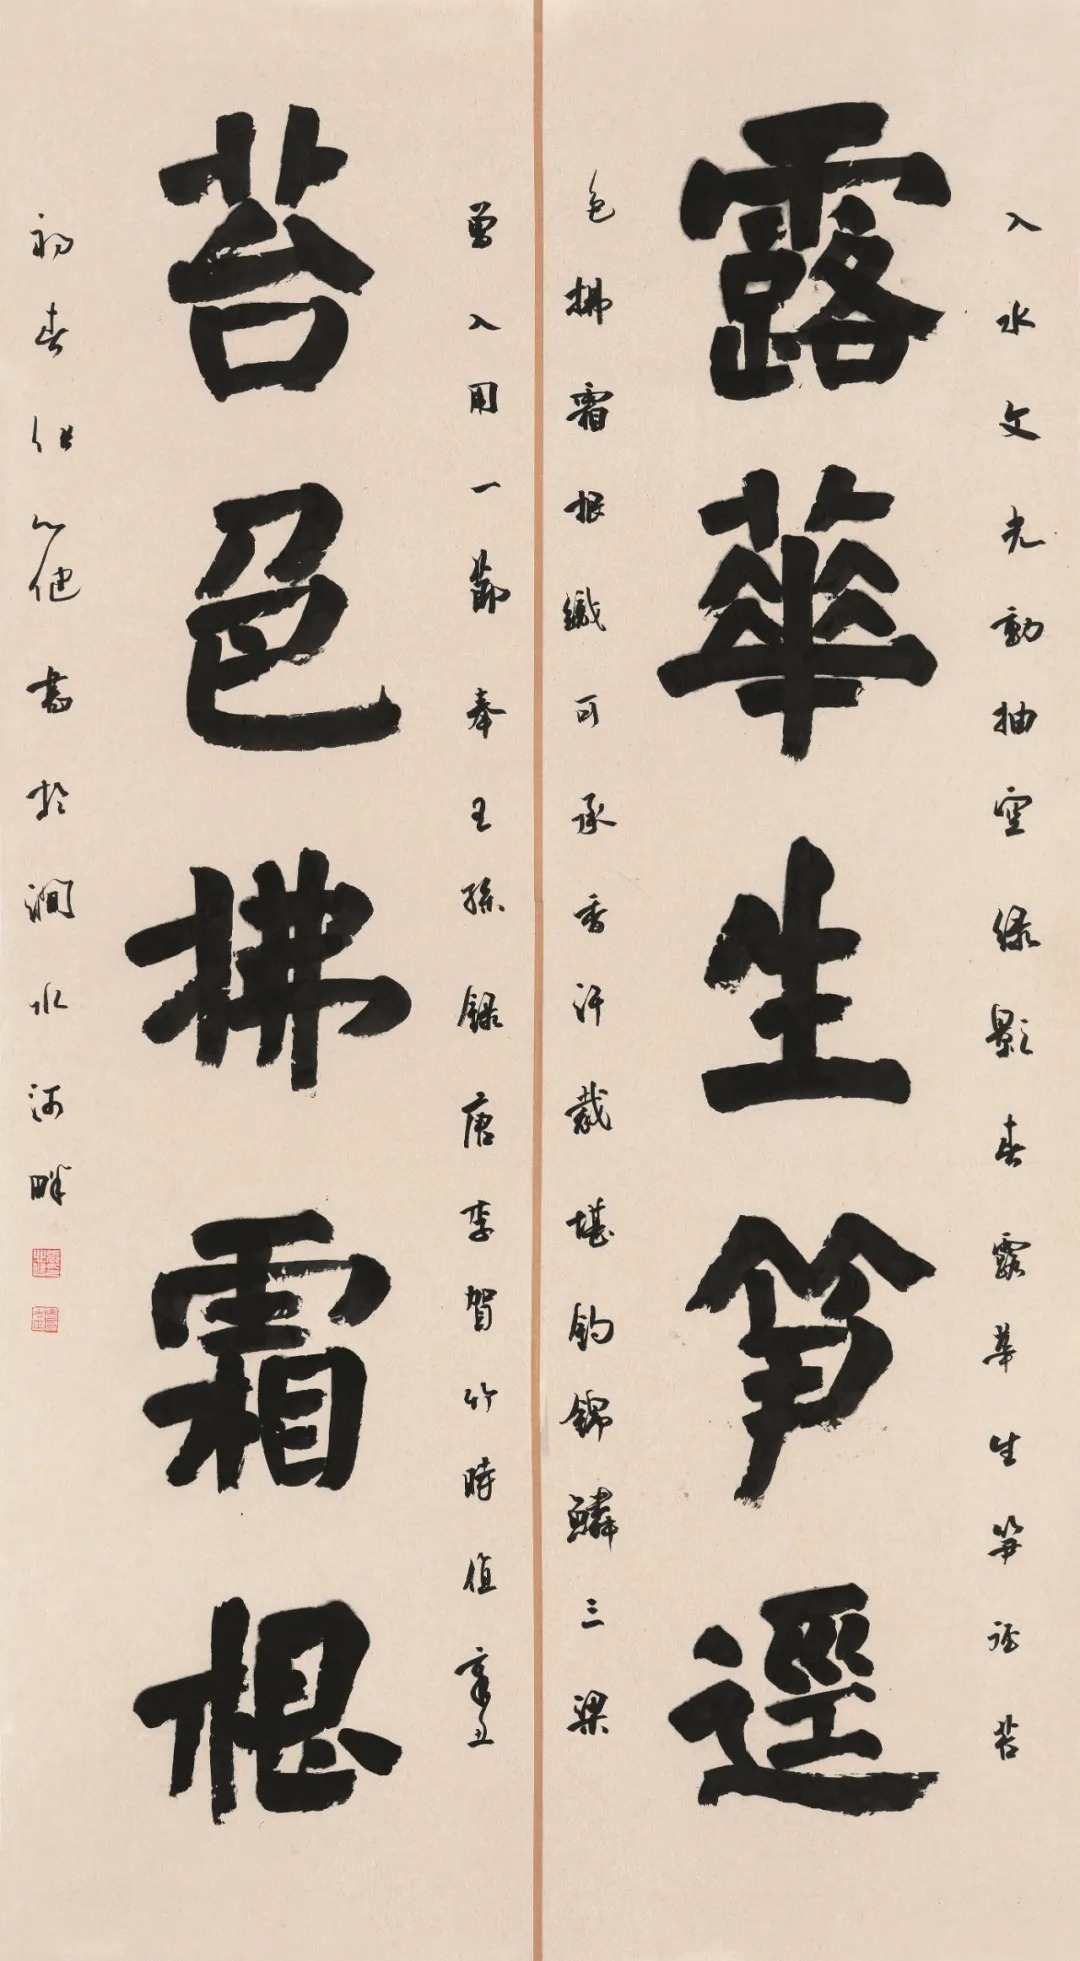 露華生笋逕
苔色拂霜根
入水文光動抽空綠影春露華生笋逕苔
色拂霜根織可承香汗裁堪釣錦鱗三梁
曾入用一節奉王孫錄唐李賀竹時值辛丑
初春健書於澗水河畔